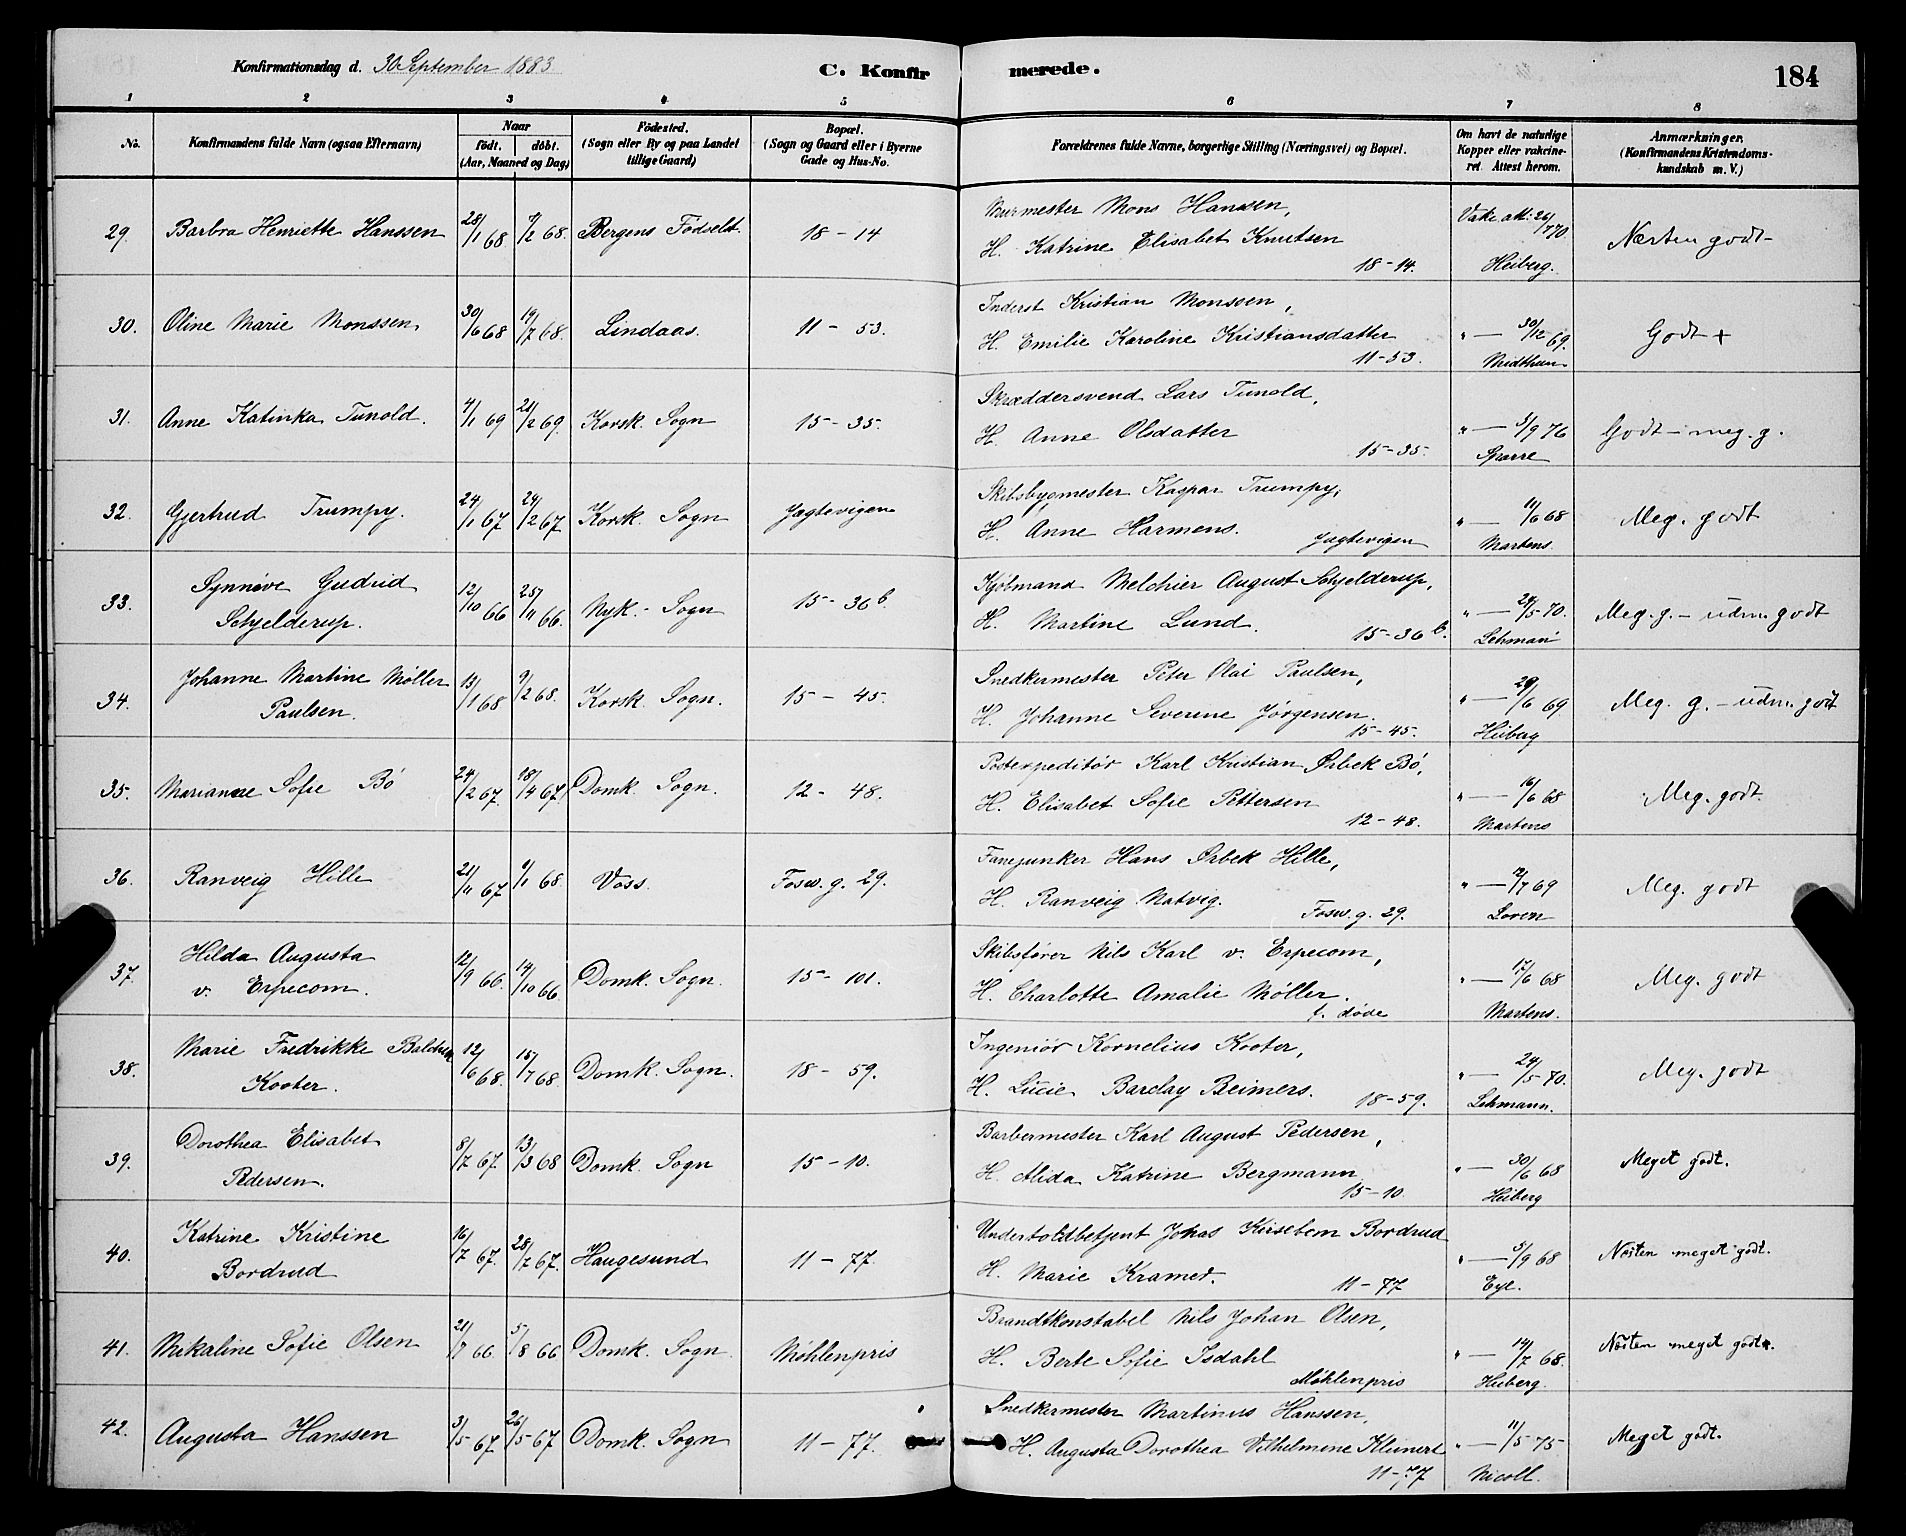 Konfirmationsdag d. 30 September 1883
C. Konfir merede. 184
1 2 3 4 5 6 7 8
No. Konfirmandens fulde Navn (ogsaa Efternavn) Naar födt. döbt. (Aar, Maaned og Dag) Födested. (Sogn eller By og paa Landet tillige Gaard) Bopæl. (Sogn og Gaard eller i Byerne Gade og Hus-No. Forældrenes fulde Navne, borgerlige Stilling (Næringsvei) og Bopæl. Om havt de naturlige Kopper eller vakcineret. Attest herom. Anmærkninger, (Konfirmandens Kristendomskundskab m. V.)
29. Barbra Henriette Hanssen 28/1 68 9/2 68. Bergens Födselst. 18-14 Murmester Mons Hanssen, Vakc. att: 26/7 70. Næsten godt-
H. Katrine Elisabet Knutsen
18-14. Heiberg.
30. Oline Marie Monssen 30/6 68 19/7 68. Lindaas. 11-53. Inderst Kristian Monssen, " — 30/12 69. Godt +
H. Emilie Karoline Kristiansdatter
11-53. Midthun
31. Anne Katinka Tunold. 4/1 69 21/2 69. Korsk. Sogn 15-35. Skræddersvend Lars Tunold, " — 5/9 76 Godt - meg. g.
H. Anne Olsdatter
15-35. Sparre
32. Gjertrud Trumpy. 24/1 67 24/2 67 Korsk. Sogn Jægtevigen Skibsbygmester Kaspar Trumpy, " — 11/6 68 Meg. godt
H. Anne Harmens.
Jægtevigen Martens.
33. Synnöve Gudrid Schjelderup. 12/10 66 25/11 66. Nyk. Sogn 15-36 b. Kjöbmand Melchier August Schjelderup, " — 28/5 70. Meg. g. - udm. godt
H. Martine Lund.
15-36 b. Lehman
34. Johanne Martine Møller Paulsen. 13/1 68 9/2 68. Korsk. Sogn. 15-45. Snedkermester Peter Olai Paulsen, " — 29/6 69 Meg. g. - udm. godt
H. Johanne Severine Jørgensen.
15-45. Heiberg
35. Marianne Sofie Bö 24/2 67. 18/4 67. Domk. Sogn. 12-48. Postexpeditör Karl Kristian Ørbek Bö, " — 16/6 68 Meg. godt.
H. Elisabet Sofie Pettersen
12-48. Martens
36. Ranveig Hille 21/11 67 1/1 68. Voss. Fosw. g. 29. Fanejunker Hans Ørbek Hille, " — 12/7 69 Meg. godt
H. Ranveig Natvig.
Fosw. g. 29. Loven
37. Hilda Augusta v. Erpecom. 12/9 66. 14/10 66 Domk. Sogn. 15-101. Skibsfører Nils Karl v. Erpecom, " — 17/6 68 Meg. godt
H. Charlotte Amalie Møller.
b. døde Martens.
38. Marie Fredrikke Kooter. 12/6 68. 15/7 68. Domk. Sogn. 18-59. Ingeniør Kornelius Kooter, " — 24/5 70. Meg. godt
H. Lucie Barclay Beimers.
18-59. Lehmann.
39. Dorothea Elisabet Pedersen. 8/7 67. 13/3 68 Domk. Sogn 15-10. Barbermester Karl August Pedersen, " — 30/6 68 Meget godt.
H. Alida Katrine Bergmann
15-10. Heiberg
40. Katrine Kristine Bordrud 16/7 67. 28/7 67. Haugesund 11-77. Undertoldbetjent Johas Kirsebom Bordrud " — 5/9 68 Nesten meget godt.
H. Marie Kramer.
11-77 Eyl.
41. Mikaline Sofie Olsen 21/7 66. 5/8 66 Domk. Sogn Møhlenpris Brandtkonstabel Nils Johan Olsen, " — 14/7 68. Nesten meget godt.
H. Berte Sofie Isdahl
Møhlenpris Heiberg.
42. Augusta Hanssen 3/5 67 26/5 67 Domk. Sogn 11-77. Snedkermester Martinus Hanssen, " — 11/5 75 Meget godt.
H. Augusta Dorothea Vilhelmine Kleinert
11-77 Nicoll.